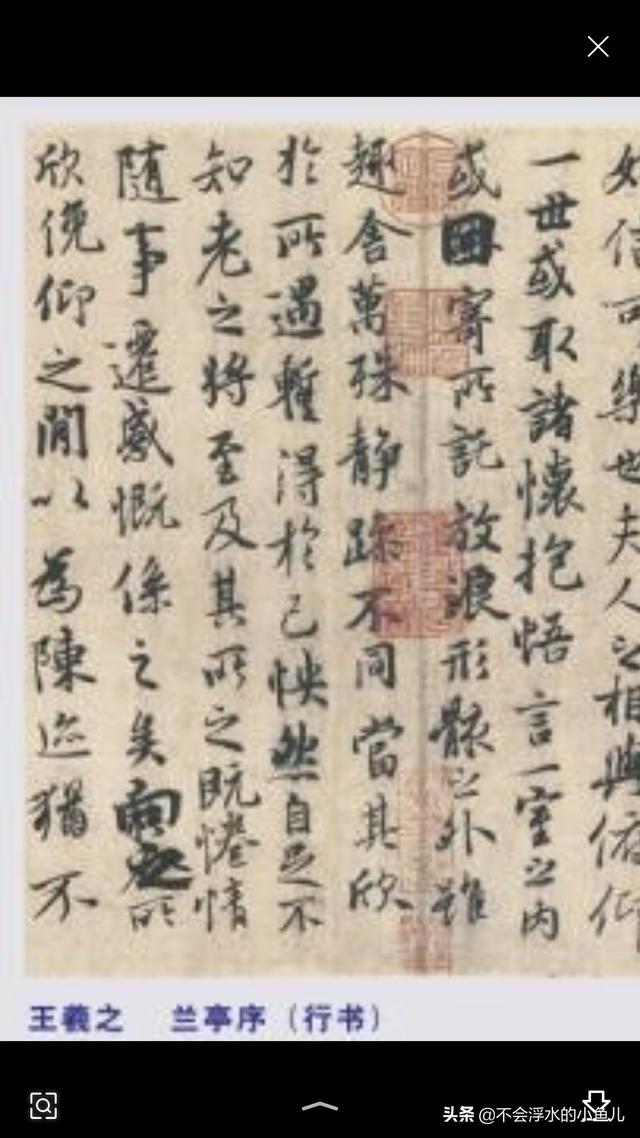 娛信可樂也夫人之相與俯仰
一世或取諸懷抱悟言一室之内
或因寄所託放浪形骸之外雖
趣舍萬殊静躁不同當其欣
於所遇暫得於己怏然自足不
知老之將至及其所之既惓情
隨事遷感慨係之矣向之所
欣俛仰之閒以為陳迹猶不
王羲之 兰亭序（行书）
头条 @不会浮水的小鱼儿